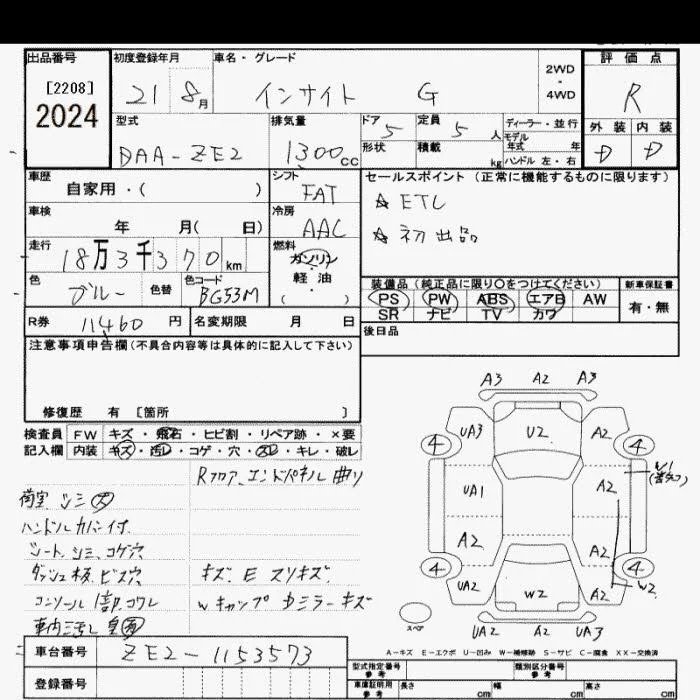 出品番号
[2208]
2024
初度登録年月
21 8月
車名・グレード
インサイト G
2WD
・
4WD
評価点
R
外装 内装
D D
型式
DAA-ZE2
排気量
1300cc
ドア
5
定員
5人
形状
積載
kg
ディーラー・並行
モデル
年式 年
ハンドル 左・右
車歴
自家用・( )
シフト
FAT
セールスポイント (正常に機能するものに限ります)
☆ ETC
☆ 初出品
車検
年 月( 日)
冷房
AAC
走行
18万3千370km
燃料
ガソリン
・
軽油
( )
色
ブルー
色替
色コード
BG53M
装備品(純正品に限り○をつけてください)
新車保証書
PS PW ABS エアB AW
SR ナビ TV カワ
有・無
R券 11460円
名変期限 月 日
後日品
注意事項申告欄(不具合内容等は具体的に記入して下さい)
修復歴 有 [箇所 ]
検査員 FW キズ・飛石・ヒビ割・リペア跡・×要
記入欄 内装 キズ・汚レ・コゲ・穴・スレ・キレ・破レ
Rフロア、エンドパネル曲り
荷室 シミ 大
ハンドルカバー付
シート、シミ、コゲ穴
ダッシュ板、ビス穴
キズ、E スリキズ
コンソール1部コワレ
Wキャップ ドミラーキズ
A3 A2 A3
UA3 U2 A2
4 4
W1
UA1 A2
A2 A2
4 4
UA2 W2 A2 W2
スペア
UA2 A2 UA3
A-キズ E-エクボ U-凹み W-補修跡 S-サビ C-腐食 XX-交換済
車台番号 ZE2-1153573
登録番号
型式指定番号
参考
類別区分番号
参考
車庫証明用
参考
長さ cm 幅 cm 高さ cm